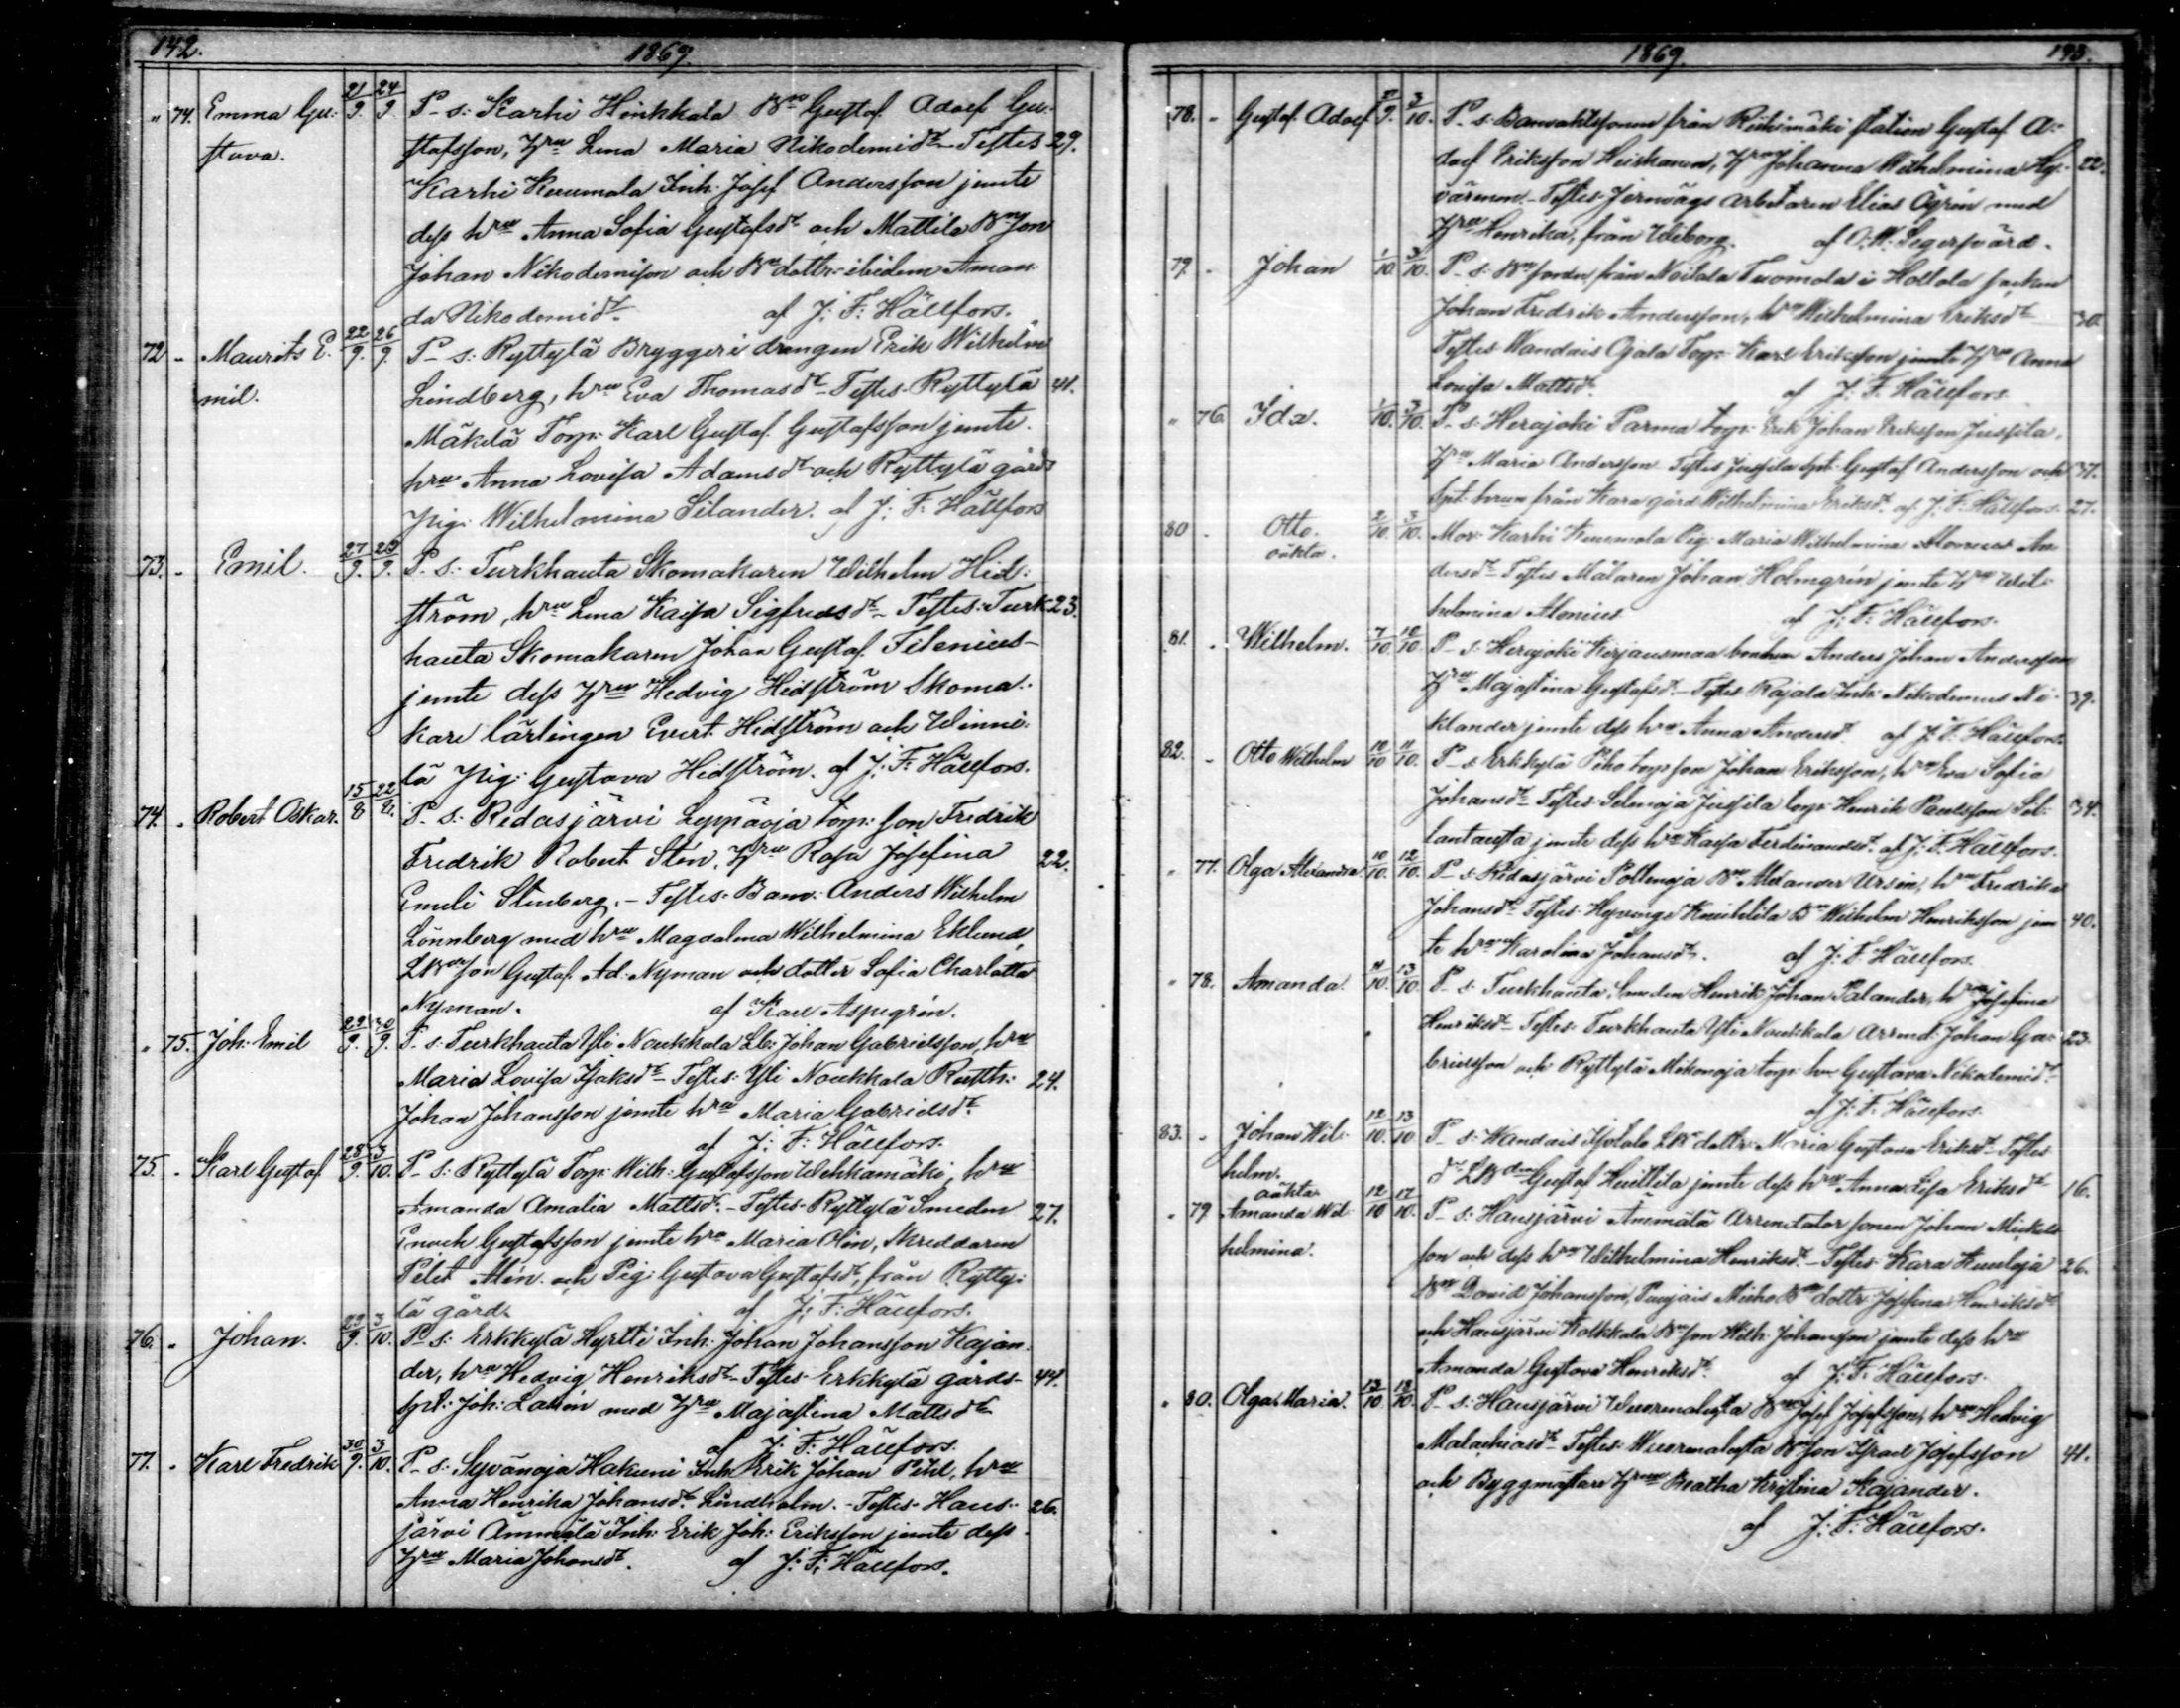 142. 1869.
" 74. Emma Gu: 21/9. 24/9. P. s: Karhi Hinkkala Bn Gustaf Adolf Gu-
stava. stafsson, hru Lena Maria Nikodemidr - Testes 29.
Karhi Kuumola Inh: Josef Andersson jemte
dess hru Anna Sofia Gustafsdr och Mattila Bn son
Johan Nikodemisson och Bn dottr: ibidem Aman-
da Nikodemidr. af J: F: Hällfors.
72 " Maurits E. 22/9. 26/9. P. s: Ryttylä Bryggeri drängen Erik Wilhelm
mil. Lindberg, hru Eva Thomasdr - Testes Ryttylä 41.
Mäkilä Torp: Karl Gustaf Gustafsson jemte
hru Anna Lovisa Adamsdr och Ryttylä gårds
pig: Wilhelmina Silander. af J: F: Hällfors
73. " Emil. 27/9. 29/9. P. s: Turkhauta Skomakaren Wilhelm Hid-
ström, hru Lena Kaisa Sigfridsdr - Testes: Turk- 23.
hauta Skomakaren Johan Gustaf Filenius
jemte dess hru Hedvig Hidström Skoma-
kare lärlingen Evert Hidström och Winni-
lä pig: Gustava Hidström. af J: F: Hällfors.
74. " Robert Oskar. 15/8 22/8. P. s: Ridasjärvi Leppäoja torp: son Fredrik
Fredrik Robert Stén, hru Rosa Josefina 22.
Emeli Stenberg. - Testes. Banv: Anders Wilhelm
Lönnberg med hru Magdalena Wilhelmina Eklund,
LBn son Gustaf Ad: Nyman och dotter Sofia Charlotta
Nyman. af Karl Aspegrén.
" 75. Joh: Emil 29/9. 30/9. P. s: Turkhauta Yli Noukkala Lb: Johan Gabrielsson, hru
Maria Lovisa Isaksdr - Testes: Yli Noukkala Rusth: 24.
Johan Johansson jemte hru Maria Gabrielsdr.
af J: F: Hällfors.
75. " Karl Gustaf 28/9. 3/10. P. s: Ryttylä Torp: Wilh: Gustafsson Wehkamäki, hru
Amanda Amalia Mattsdr. - Testes. Ryttylä Smeden 27.
Enoch Gustafsson jemte hru Maria Olin, Skreddaren
Alén och Pig: Gustava Gustafsdr, från Rytty-
lä gård. af J: F: Hällfors.
76. " Johan. 29/9. 3/10. P. s: Erkkylä Hyrtti Inh: Johan Johansson Kajan-
der, hru Hedvig Henriksdr - Testes Erkkylä gårds- 44.
spt: Joh: Latin med hru Majastina Mattsdr
af J: F: Hällfors.
77. " Karl Fredrik 30/9. 3/10. P. s: Syvänoja Hakuni Inh Erik Johan Pihl, hru
Anna Henrika Johansdr Lindholm. - Testes Haus- 26.
järvi Ämmälä Inh: Erik Joh: Eriksson jemte dess
hru Maria Johansdr. af J: F: Hällfors.
1869. 143.
78. " Gustaf Adolf 2/9. 3/10. P. s: Banvaktssonen från Riihimäki station Gustaf A-
dolf Eriksson Heiskanen, hru Johanna Wilhelmina Hy- 22.
värinen. - Testes. Jernvägs arbetaren Elias Ögrén med
hru Henrika, från Wiborg. af O. W. Segersvärd.
79. " Johan 1/10 3/10. P. s: Bn sonen från Noitala Tuomola i Hollola socken
Johan Fredrik Andersson, hru Wilhelmina Eriksdr 30
Testes Wandais Ojala Torp: Karl Eriksson jemte hru Anna
Lovisa Mattsdr. af J: F: Hällfors.
" 76 Ida. 1/10. 3/10. P. s: Herajoki Parma torp: Erik Johan Eriksson Jussila,
hru Maria Andersson Testes Jussila Spt: Gustaf Andersson och 37.
Spt: hrun från Kara gård Wilhelmina Eriksdr. af J: F: Hällfors. 27.
80 " Otto. 2/10. 3/10. Mor: Karhi Kuumola Pig: Maria Wilhelmina Alonius An-
oäkta. dersdr - Testes Målaren Johan Holmgrén jemte hru Wil-
helmina Alonius af J: F: Hällfors.
81. " Wilhelm. 7/10. 10/10. P. s: Herajoki Kirjausmaa Anders Johan Andersson
hru Majastina Gustafsdr. - Testes Rajala Inh: Nikodemus Ni- 39.
klander jemte dess hru Anna Andersdr. af J: F: Hällfors.
82. " Otto Wilhelm 10/10 11/10. P. s: Erkkylä Piho torp son Johan Eriksson, hru Eva Sofia
Johansdr Testes: Selmoja Jussila torp: Henrik Paulsson Sil- 34.
lantausta jemte dess hru Kaisa Ferdinandsdr. af J: F: Hällfors.
" 77. Olga Alexandra 10/10. 12/10. P. s: Ridasjärvi Poltinoja Bn Alexander Ursin, hru Fredrika
Johansdr Testes Hyvinge Knihtilä Bn Wilhelm Henriksson jem- 40.
te hru Karolina Johansdr. af J: F: Hällfors.
" 78. Amanda. 11/10. 13/10. P. s: Turkhauta, Smeden Henrik Johan Palander, hru Josefina
Henriksdr Testes: Turkhauta Yli Noukkala Arrend: Johan Ga- 23.
brielsson och Ryttylä Mikonoja torp: hru Gustava Nikodemidr.
af J: F: Hällfors.
83. " Johan Wil- 12/10. 13/10 P. s: Wandais Isotalo LBn dottr: Maria Gustava Eriksdr Testes
helm. LBn Gustaf Heikkilä jemte dess hru Anna Lisa Eriksdr 16.
oäkta
" 79 Amanda Wil- 12/10 17/10. P. s: Hausjärvi Ämmälä Arrendator sonen Johan Mickels-
helmina. son och dess hru Wilhelmina Henriksdr. - Testes Kara Kuuloja 26.
Bn David Johansson, Puujais Micko Bn dottr: Josefina Henriksdr
och Hausjärvi Kolkkala Bn son Wilh: Johansson jemte dess hru
Amanda Gustava Henriksdr. af J: F: Hällfors.
" 80. Olga Maria. 13/10 18/10. P. s: Hausjärvi Wuormalusta Bn Josef Josefsson, hru Hedvig
Malachiasdr Testes: Wuormalusta Bn son Israel Josefsson 41.
och Byggmästare hrun Beatha Kristina Kajander.
af J: F: Hällfors.